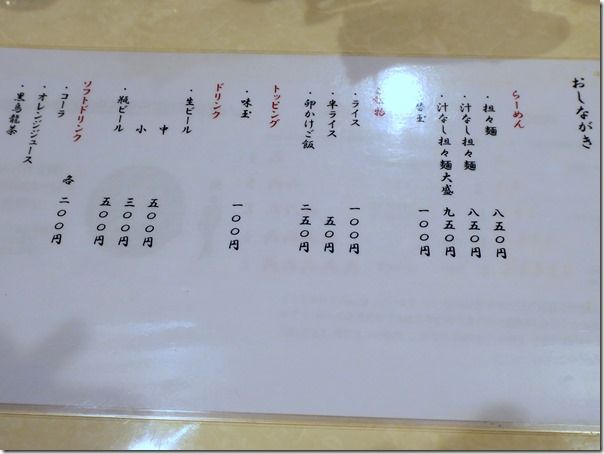 おしながき
らーめん
・担々麺 八五〇円
・汁なし担々麺 八五〇円
・汁なし担々麺大盛 九五〇円
替玉 一〇〇円
物
・ライス 一〇〇円
・半ライス 五〇円
・卵かけご飯 二五〇円
トッピング
・味玉 一〇〇円
ドリンク
・生ビール
中 五〇〇円
小 三〇〇円
・瓶ビール 五〇〇円
ソフトドリンク
・コーラ 各 二〇〇円
・オレンジジュース
・黒烏龍茶